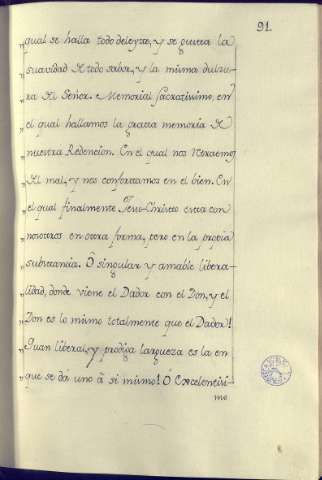 91
„qual se halla todo deleyte, y se gusta la
„suavidad de todo sabor, y la misma dulzu-
„ra del Señor. Memorial sacratissimo, en
„el qual hallamos la grata memoria de
„nuestra Redencion. En el qual nos retraemos
„del mal, y nos confortamos en el bien. En
„el qual finalmente Jesu-Christo esta con
„nosotros en otra forma, pero en la propia
„substancia. Ô singular y amable libera-
„lidad, donde viene el Dador con el Don, y el
„Don es lo mismo totalmente que el Dador!
„Quan liberal, y prodiga largueza es la en
„que se dá uno â si mismo! Ô Excelentisi-
mo